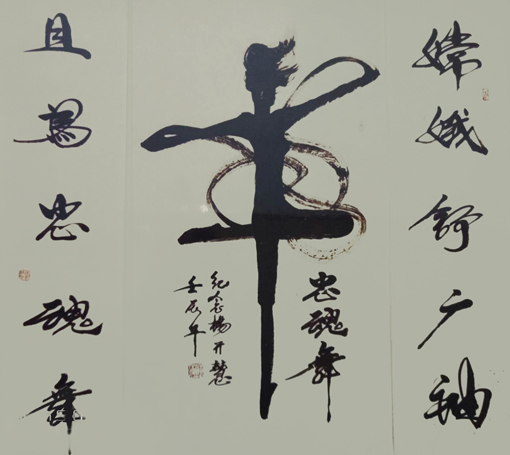 嫦娥舒广袖
忠魂舞
纪念杨开慧
壬辰年
且为忠魂舞